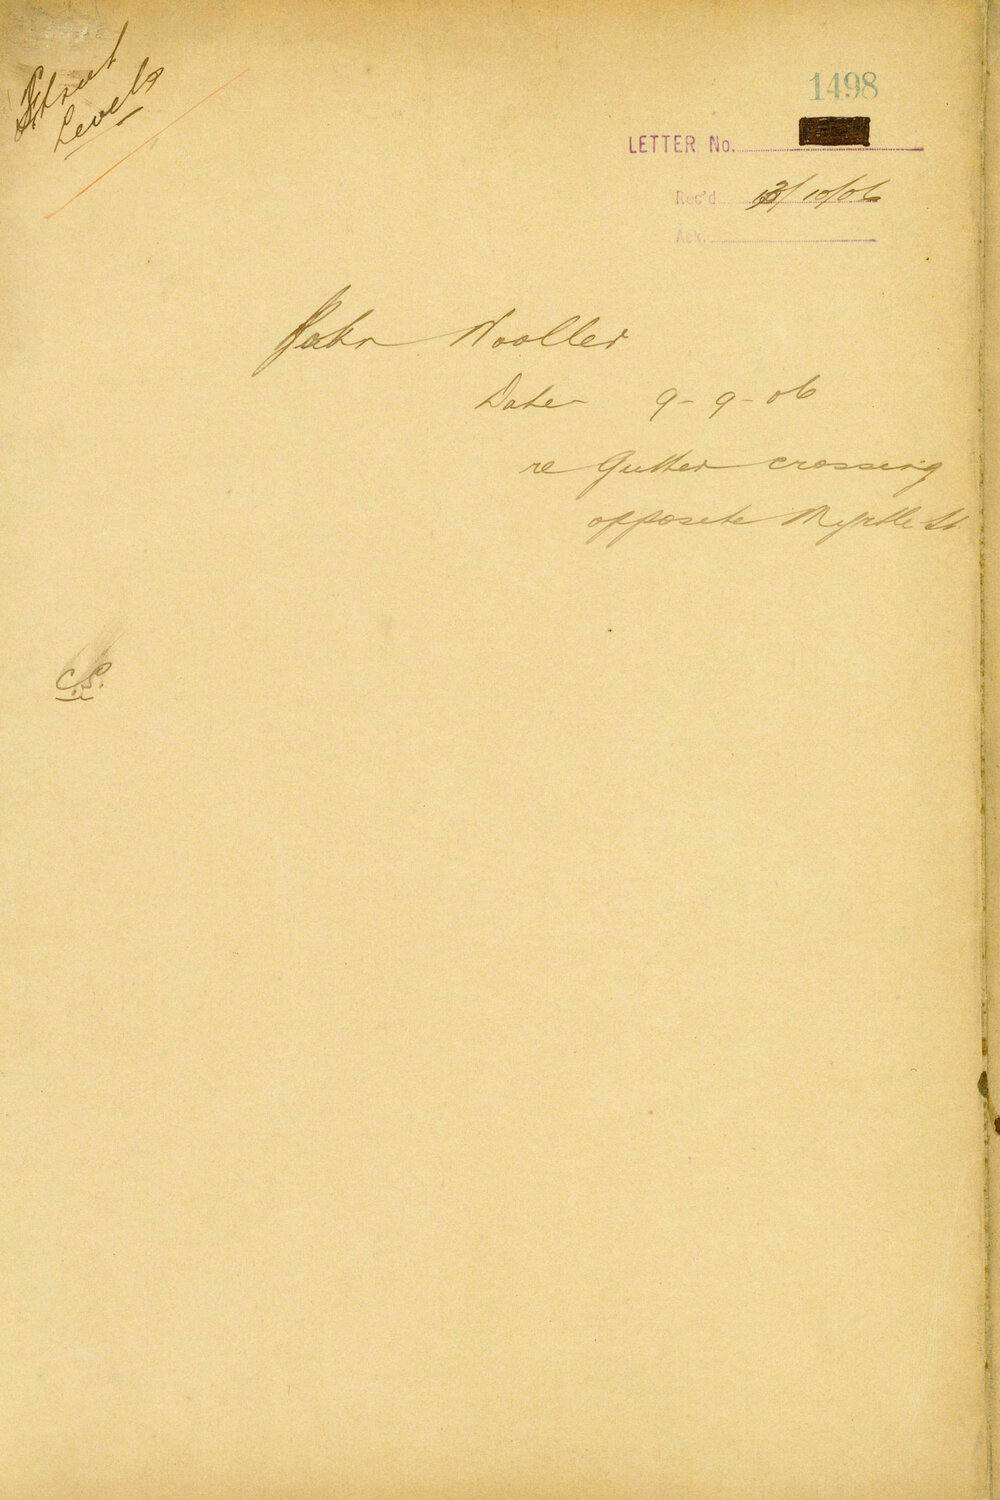 Street
Levels
1498
LETTER No.
Rec'd 13/10/06
Ack.
John Wooller
Date 9-9-06
re Gutter crossing
opposite Myrtle St
C.S.